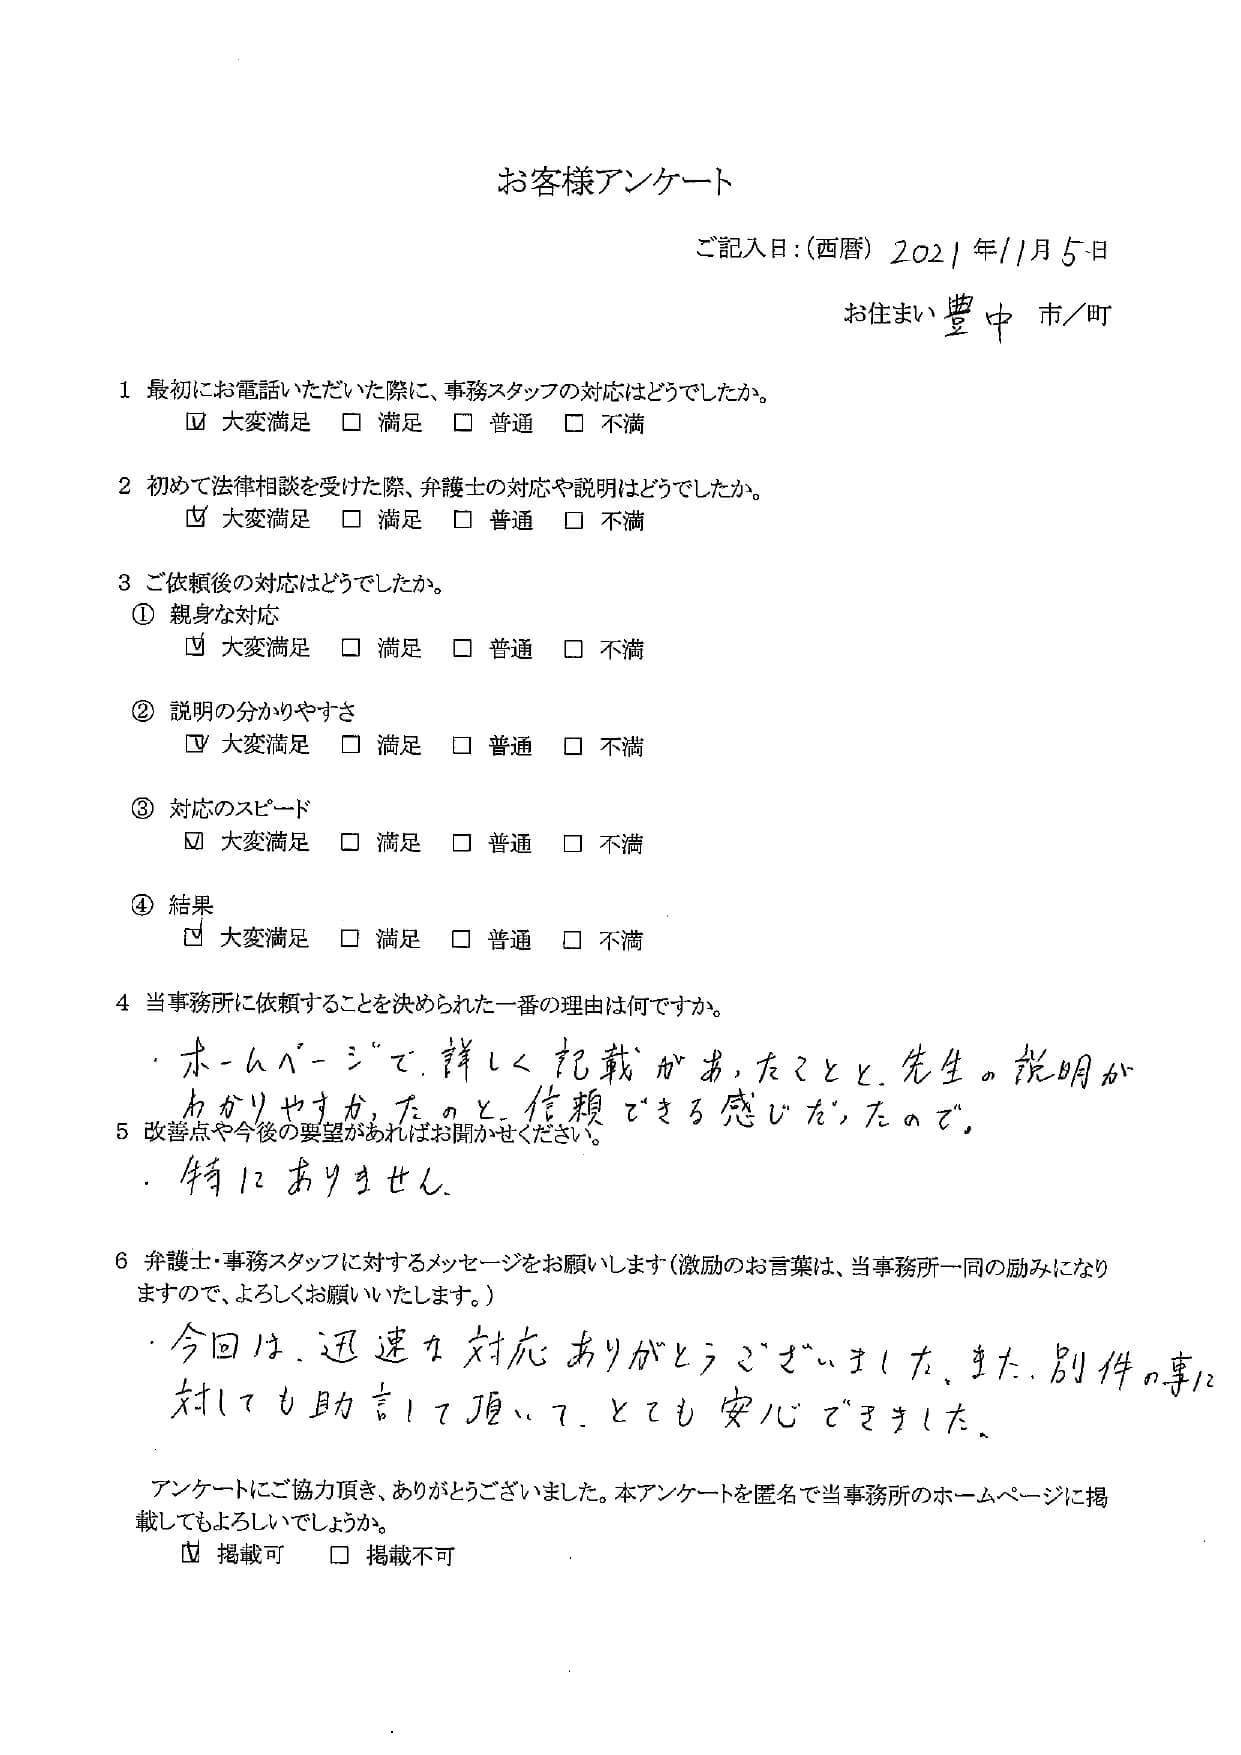 お客様アンケート
ご記入日:(西暦) 2021年11月5日
お住まい 豊中 市／町
1 最初にお電話いただいた際に、事務スタッフの対応はどうでしたか。
☑ 大変満足 □ 満足 □ 普通 □ 不満
2 初めて法律相談を受けた際、弁護士の対応や説明はどうでしたか。
☑ 大変満足 □ 満足 □ 普通 □ 不満
3 ご依頼後の対応はどうでしたか。
① 親身な対応
☑ 大変満足 □ 満足 □ 普通 □ 不満
② 説明の分かりやすさ
☑ 大変満足 □ 満足 □ 普通 □ 不満
③ 対応のスピード
☑ 大変満足 □ 満足 □ 普通 □ 不満
④ 結果
☑ 大変満足 □ 満足 □ 普通 □ 不満
4 当事務所に依頼することを決められた一番の理由は何ですか。
・ホームページで、詳しく記載があったことと、先生の説明が
わかりやすかったのと、信頼できる感じだったので。
5 改善点や今後の要望があればお聞かせください。
・特にありません。
6 弁護士・事務スタッフに対するメッセージをお願いします(激励のお言葉は、当事務所一同の励みになり
ますので、よろしくお願いいたします。)
・今回は、迅速な対応ありがとうございました。また、別件の事に
対しても助言して頂いて、とても安心できました。
アンケートにご協力頂き、ありがとうございました。本アンケートを匿名で当事務所のホームページに掲
載してもよろしいでしょうか。
☑ 掲載可 □ 掲載不可